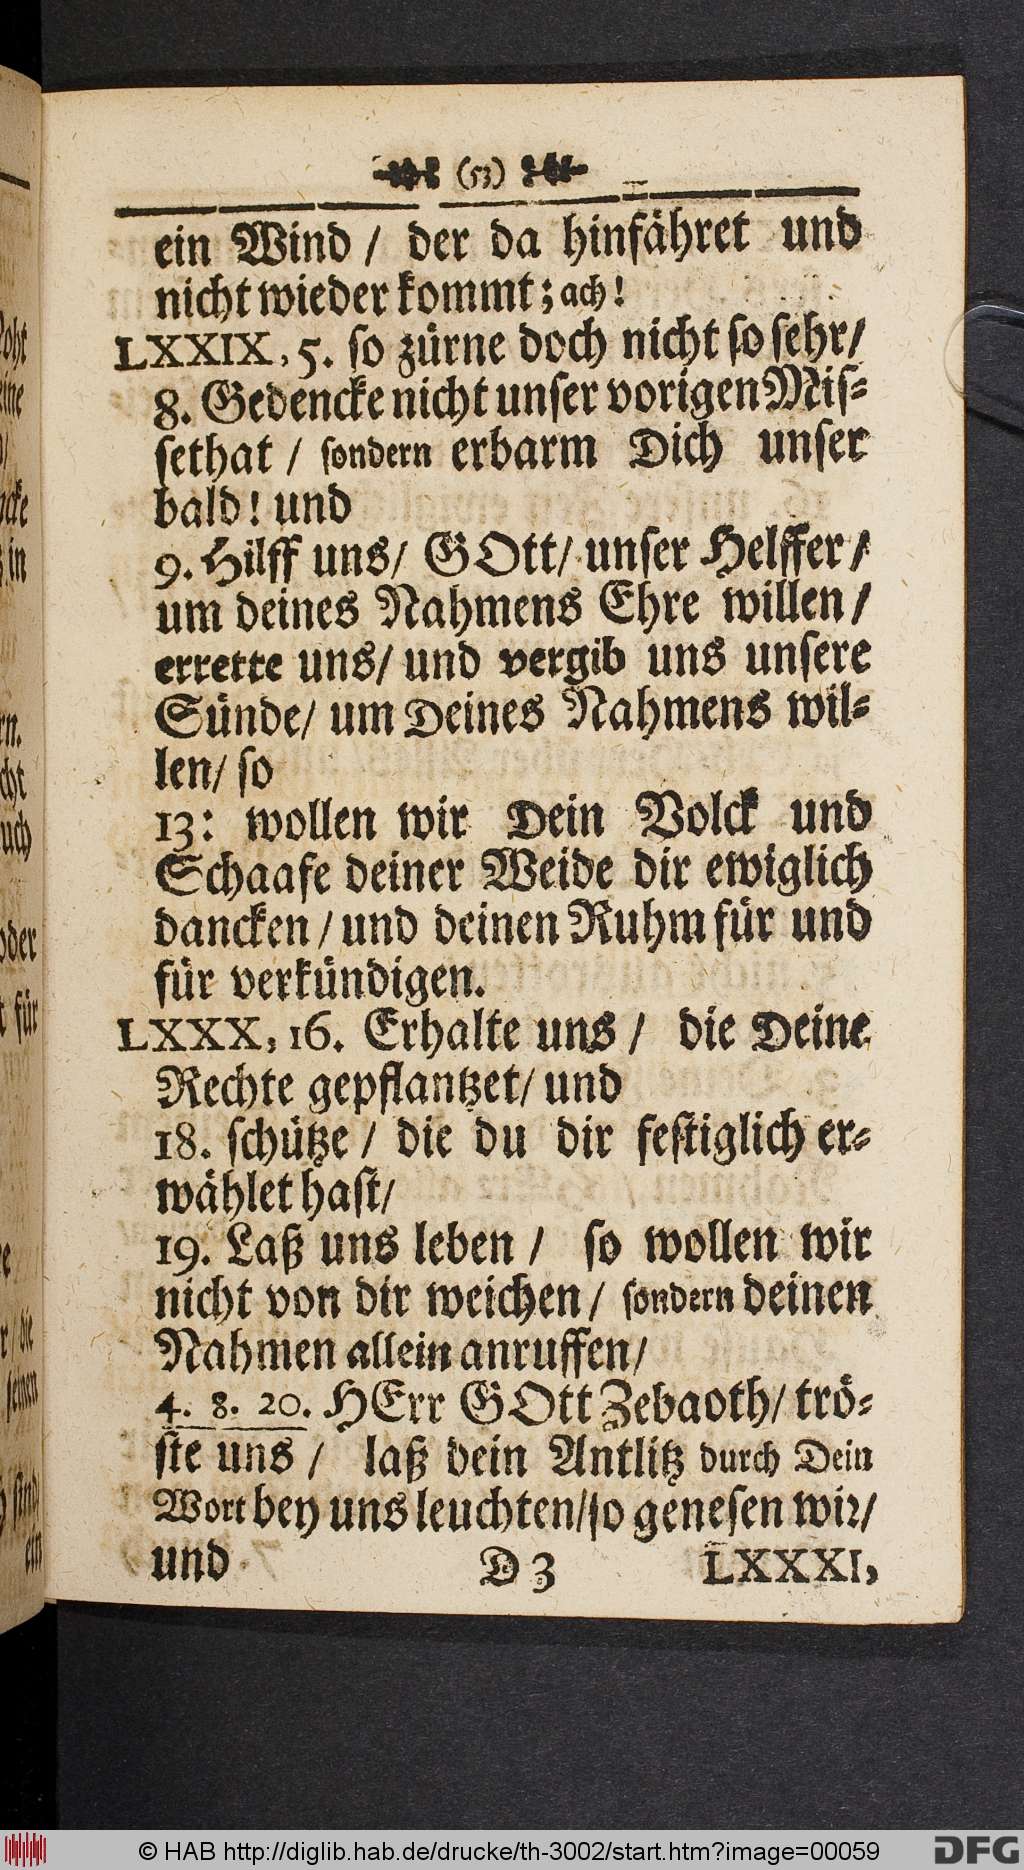 (53)
ein Wind / der da hinfähret und
nicht wieder kommt; ach!
LXXIX, 5. so zürne doch nicht so sehr/
8. Gedencke nicht unser vorigen Mis-
sethat / sondern erbarm Dich unser
bald! und
9. Hilff uns/ GOtt/ unser Helffer/
um deines Nahmens Ehre willen/
errette uns/ und vergib uns unsere
Sünde/ um Deines Nahmens wil-
len/ so
13: wollen wir Dein Volck und
Schaafe deiner Weide dir ewiglich
dancken / und deinen Ruhm für und
für verkündigen.
LXXX, 16. Erhalte uns / die Deine
Rechte gepflantzet/ und
18. schütze / die du dir festiglich er-
wählet hast/
19. Laß uns leben / so wollen wir
nicht von dir weichen/ sondern deinen
Nahmen allein anruffen/
4. 8. 20. HErr GOtt Zebaoth/ trö-
ste uns / laß dein Antlitz durch Dein
Wort bey uns leuchten/ so genesen wir/
und D 3 LXXXI,
© HAB http://diglib.hab.de/drucke/th-3002/start.htm?image=00059
DFG